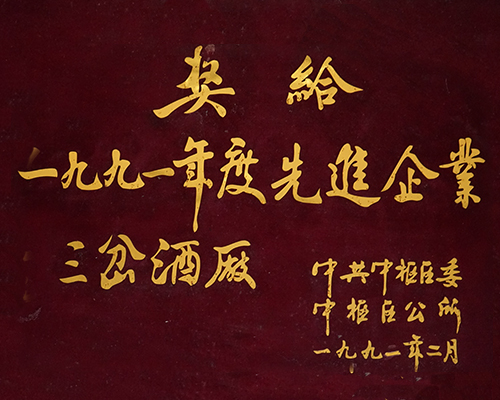 奖給
一九九一年度先進企業
三岔酒厰
中共中枢区委
中枢区公所
一九九二年二月